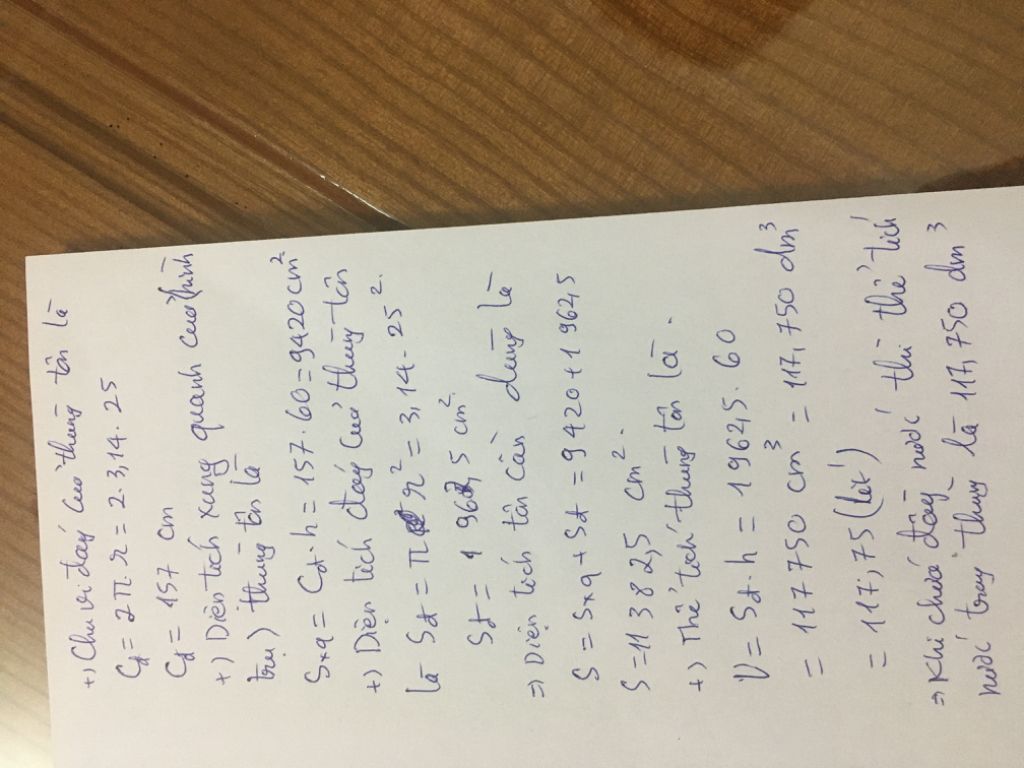 +) Chu vi đáy của thùng tôn là
Cđ = 2π.r = 2.3,14.25
Cđ = 157 cm
+) Diện tích xung quanh của (hình
trụ) thùng tôn là
Sxq = Cđ.h = 157.60 = 9420 cm²
+) Diện tích đáy của thùng tôn
là Sđ = π r² = 3,14.25².
Sđ = 1962,5 cm².
=> Diện tích tôn cần dùng là
S = Sxq + Sđ = 9420 + 1962,5
S = 11382,5 cm².
+) Thể tích thùng tôn là.
V = Sđ.h = 1962,5.60
= 117750 cm³ = 117,750 dm³
= 117,75 (lít)
=> Khi chứa đầy nước thì thể tích
nước trong thùng là 117,750 dm³